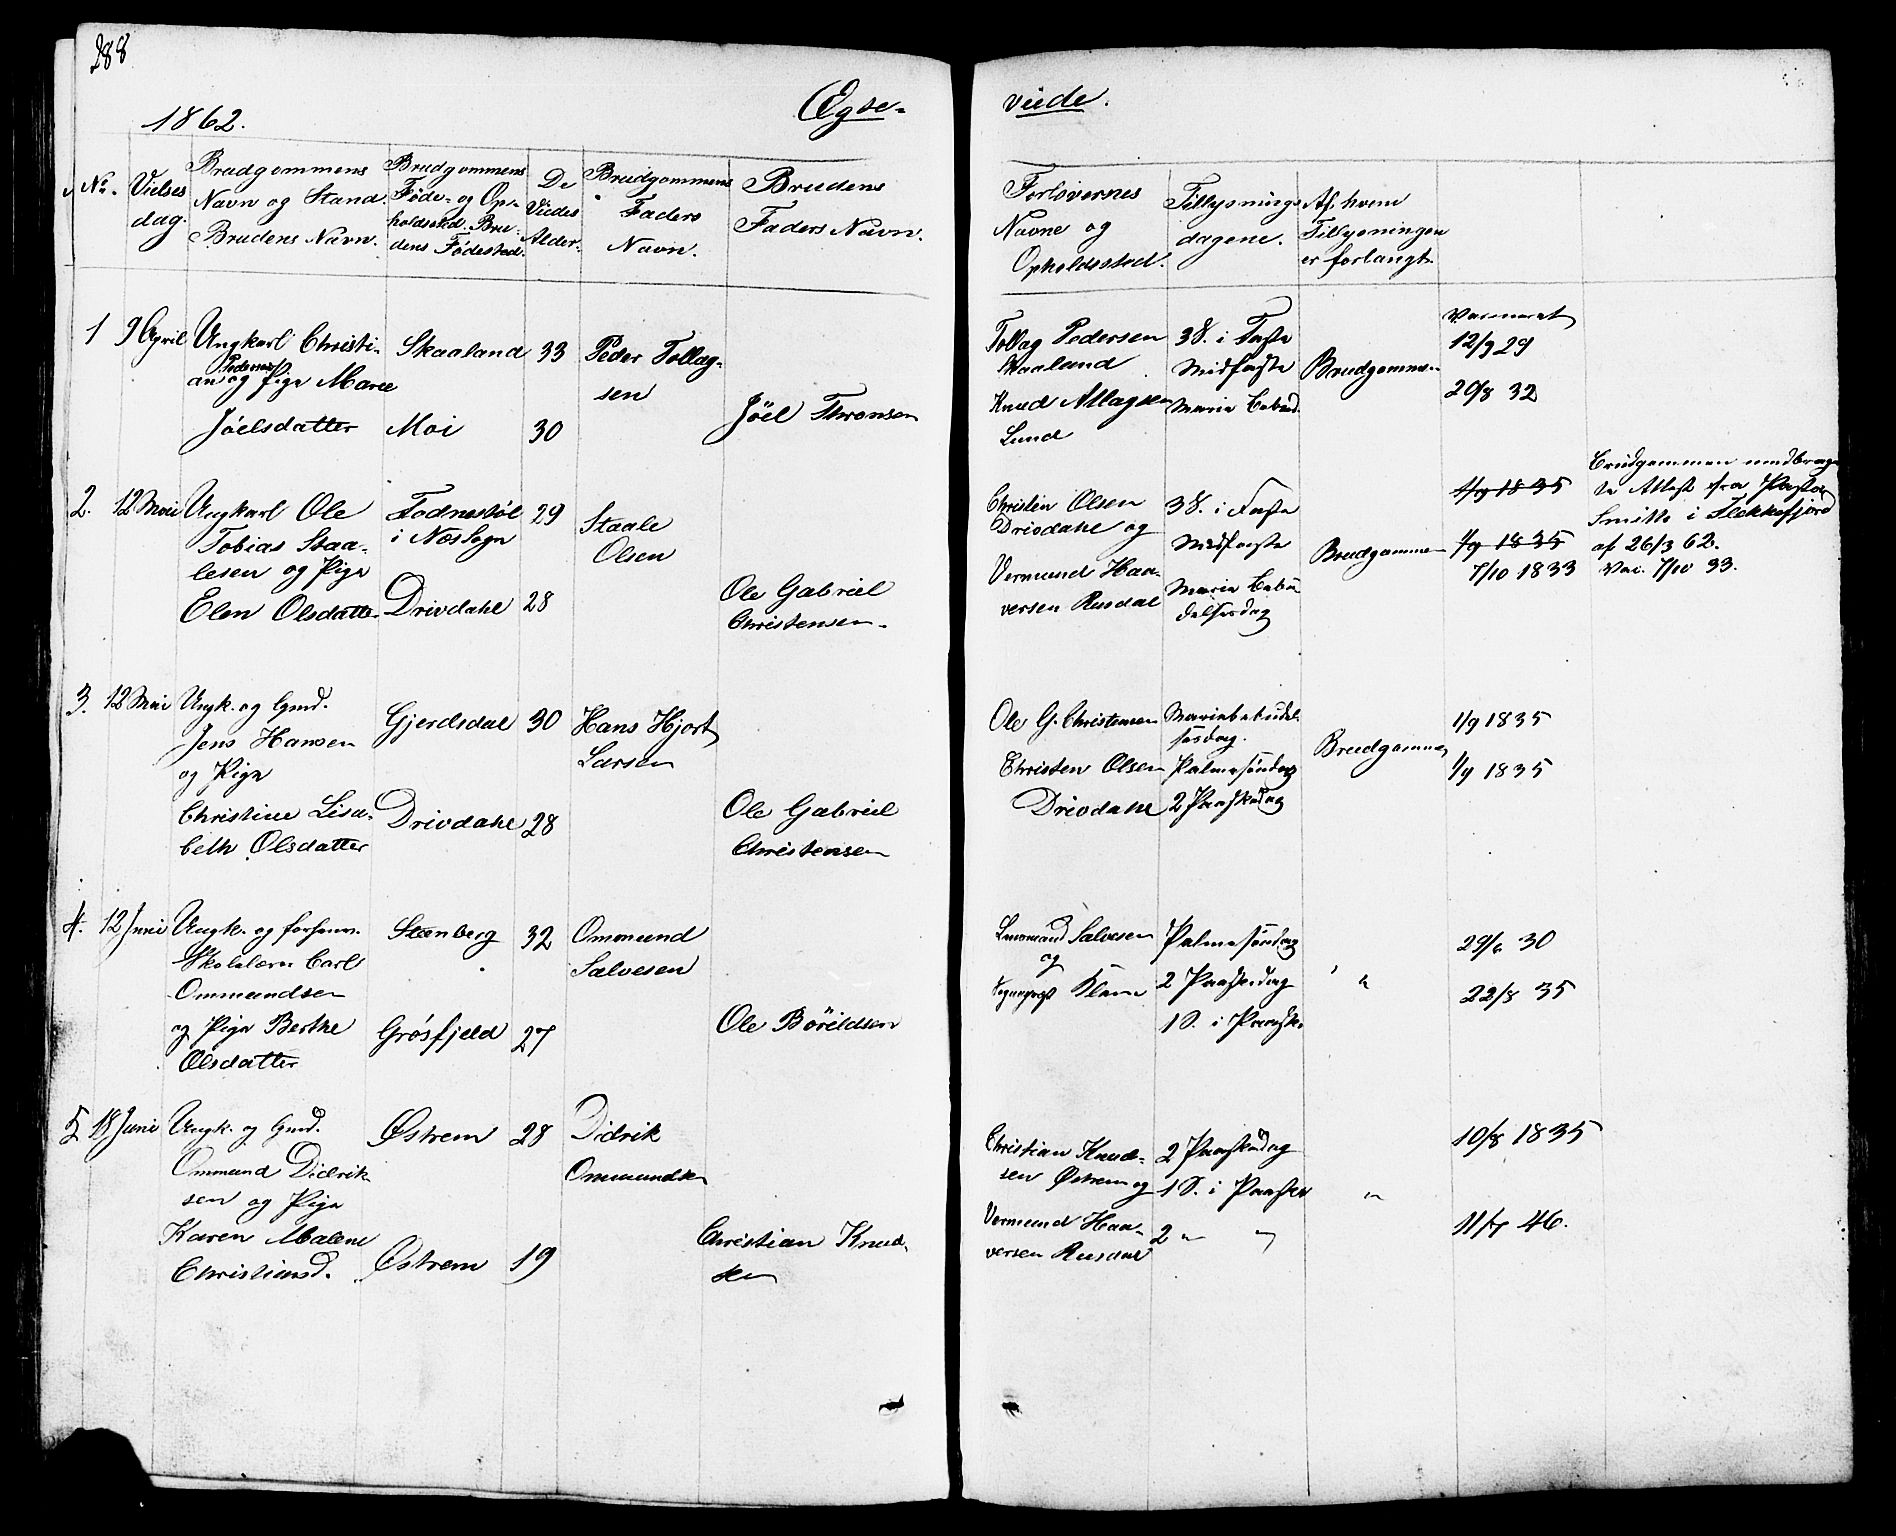 288
1862.
Ægte-
viede.
No.
Vielses
dag.
Brudgommens
Navn og Stand.
Brudens Navn.
Brudgommens
Føde- og Op-
holdssted. Bru-
dens Fødested.
De
Viedes
Alder.
Brudgommens
Faders
Navn.
Brudens
Faders Navn.
Forlovernes
Navne og
Opholdssted.
Tillysnings
dagene.
Af hvem
Tillysningen
er forlangt.
1
9 April
Ungkarl Christi-
Pedersen
an og Pige Marie
Jöelsdatter
Skaaland
Moi
33
30
Peder Tollag-
sen
Jöel Thronsen
Tollag Pedersen
Skaaland
Knud Allagsen
Lund
3 S. i Faste
Midfaste
Maria Bebud.
Brudgommen
Vaccineret
12/9 29
20/8 32
2.
12 Mai
Ungkarl Ole
Tobias Staa-
lesen og Pige
Elen Olsdatter
Fodnestøl
i Næs Sogn
Drivdahl
29
28
Staale
Olsen
Ole Gabriel
Christensen.
Christen Olsen
Drivdahl og
Vermund Haa-
versen Rusdal
3 S. i Faste
Midfaste
Maria Bebu
delsesdag
Brudgommen
1/9 1835
1/9 1835
7/10 1833
Brudgommen medbrag-
te Attest fra Pastor
Smith i Flekkefjord
af 26/3 62.
Vac. 7/10 33.
3.
12 Mai
Ungk. og Gmd.
Jens Hansen
og Pige
Christine Lisa-
beth Olsdatter
Gjerdsdal
Drivdahl
30
28
Hans Hjort
Larsen
Ole Gabriel
Christensen
Ole G. Christensen
Christen Olsen
Drivdahl
Mariæbebudel
sesdag.
Palmesøndag
2 Paaskedag
Brudgommen
1/9 1835
1/9 1835
4.
12 Juni
Ungk. og forhenv.
Skolelærer Carl
Ommundsen
og Pige Berthe
Olsdatter
Steenberg
Grösfjeld
32
27
Ommund
Salvesen
Ole Böreldsen
Salvesen
og
Klam
Palmesøndag
2 Paaskedag
1 S. i Paaske
"
29/6 30
22/8 35
5
18 Juni
Ungk. og Gmd.
Ommund Didrik
sen og Pige
Karen Malene
Christiansd.
Østrem
Østrem
28
19
Didrik
Ommundsen
Christian Knud-
sen
Christian Knud-
sen Østrem og
Vermund Haa-
versen Rusdal
2 Paaskedag
1 S. i Paaske
2 " "
"
10/8 1835
11/7 46.